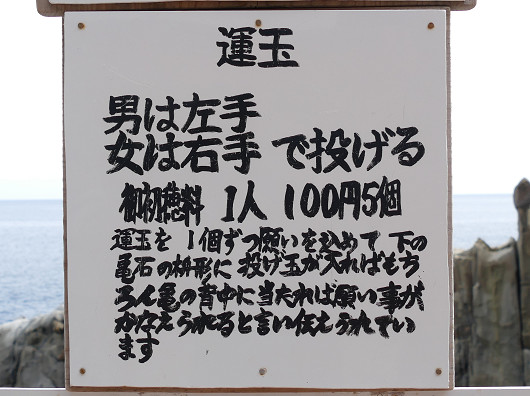 運玉
男は左手
女は右手 で投げる
御初穂料 1人 100円5個
運玉を1個ずつ願いを込めて下の
亀石の枡形に投げ玉が入ればもち
ろん亀の背中に当たれば願い事が
かなえられると言い伝えられてい
ます